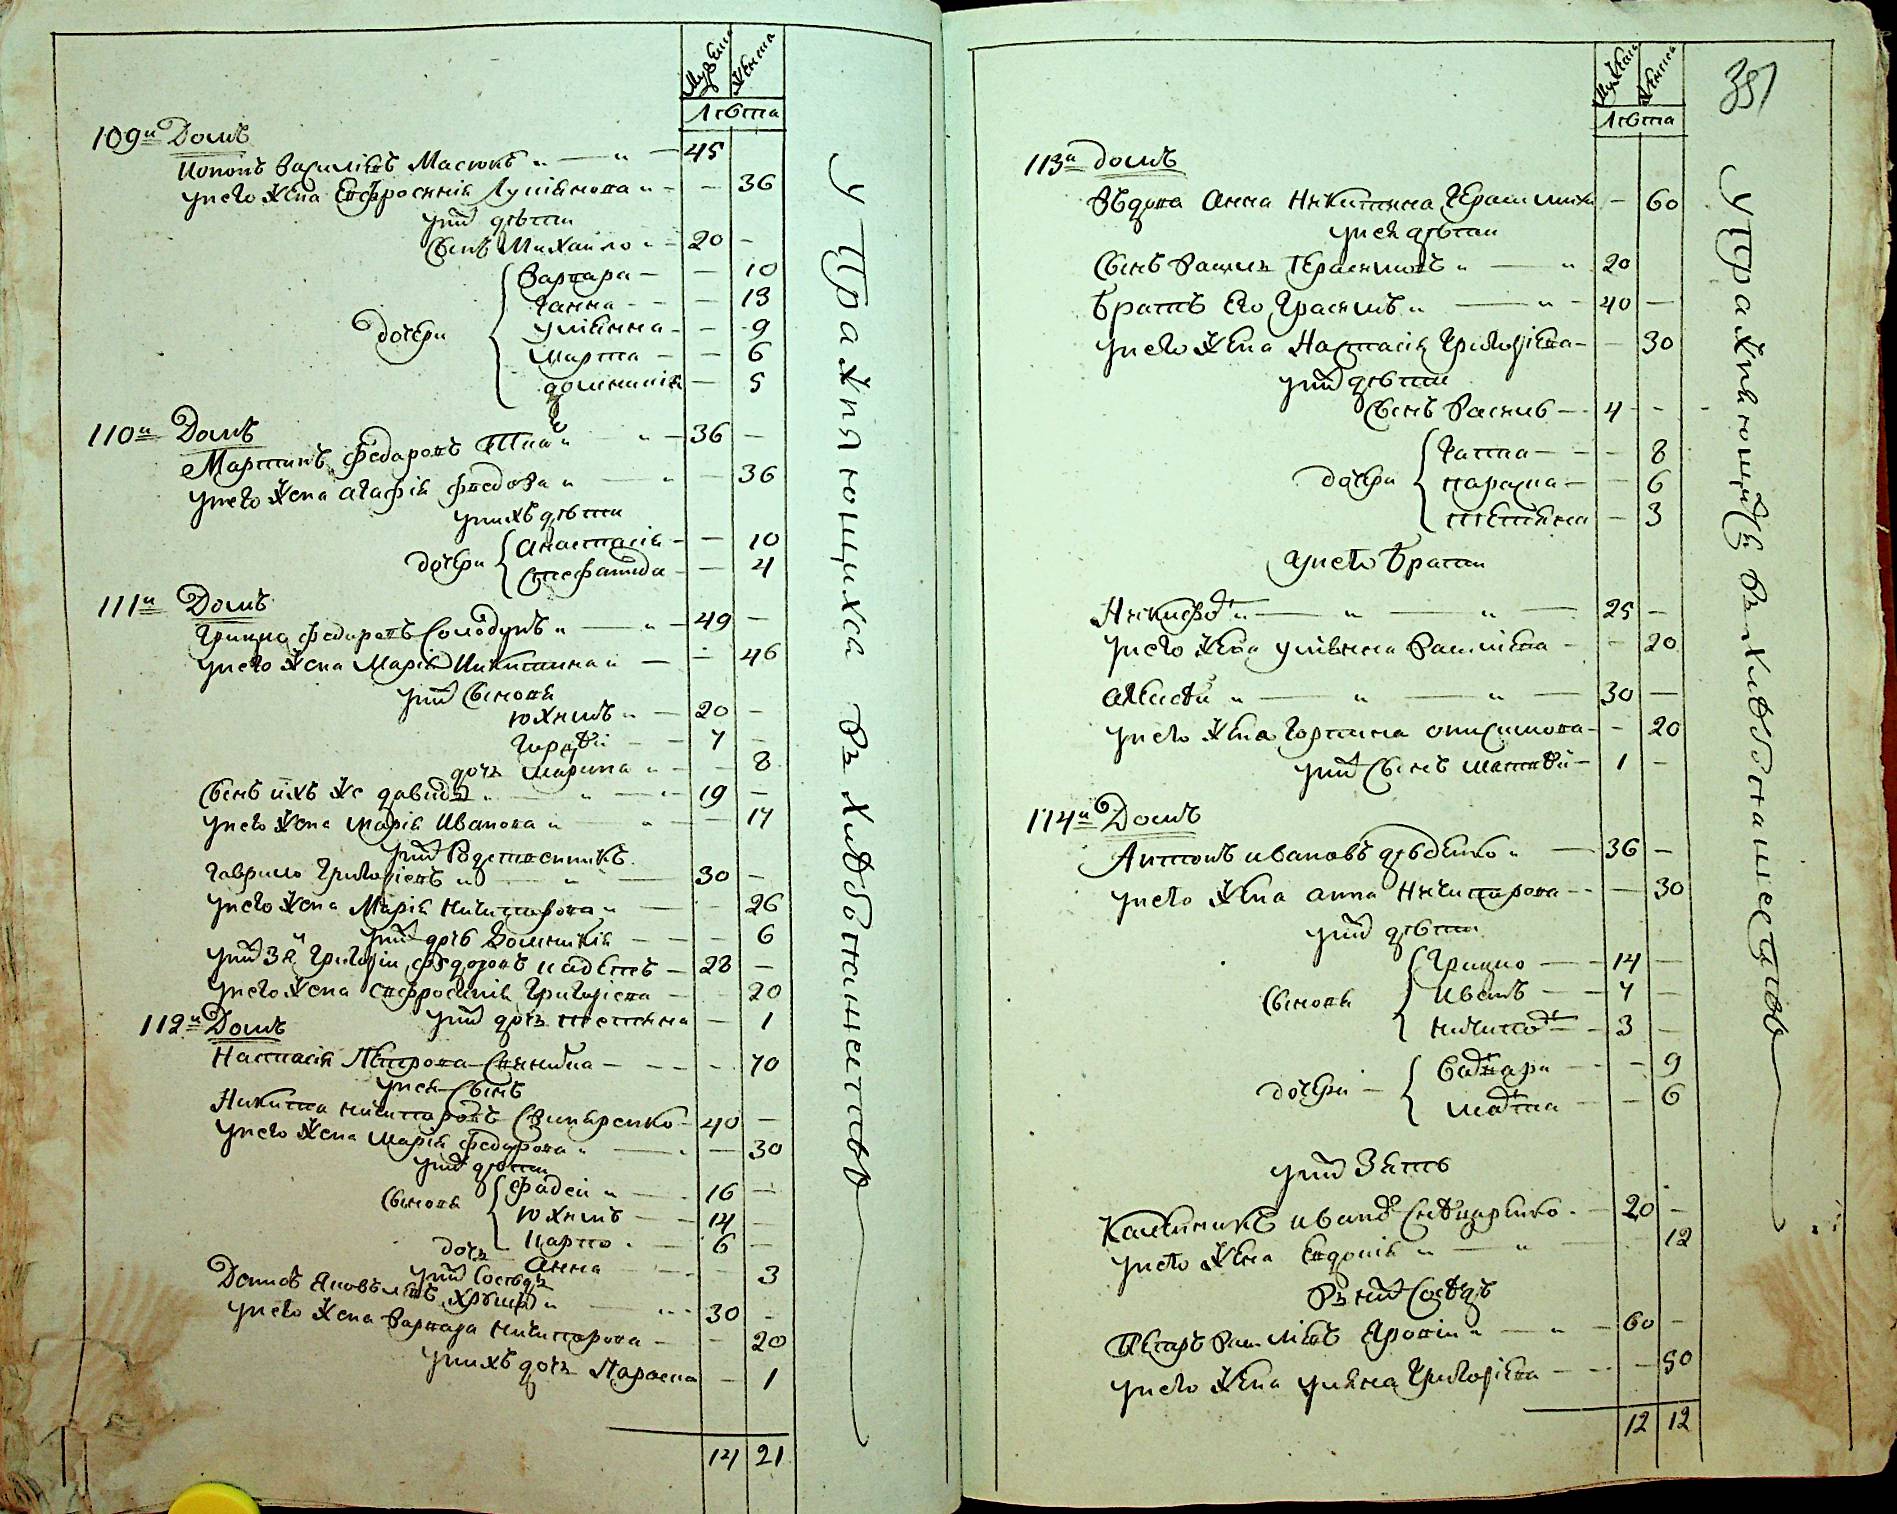 Мужеска
Женска
Лѣта
109й Домъ
Василіевъ Масюкъ 45
унего Жена Евфросиніа Лукіанова 36
уних дѣти
Сынъ Михайло 20
дочери
Варвара 10
Ганна 13
Уліянна 9
Марта 6
Домникіа 5
110й Домъ
Мартинъ Федоровъ 36
унего Жена Агафіа Федо 36
унихъ дѣти
дочери
Анастасіа 10
Стефанида 4
111й Домъ
Грицко Федоровъ Солодунъ 49
унего Жена Маріа Никитина 46
уних Сыновя
Юхимъ 20
Гордѣй 7
дочь Марина 8
Сынъ ихъ же давидъ 19
унего Жена Маріа Иванова 17
уних Родственникъ
Гаврило Григоріевъ 30
унего Жена Маріа Ничипорова 26
уних дочь Домникіа 6
уних Зя Григорій Федоровъ 28
унего Жена Евфросиніа Григоріева 20
уних дочь Тетяна 1
112й Домъ
Настасіа Петрова 70
унея Сынъ
Никита Ничипоровъ 40
унего Жена Маріа Федорова 30
уних дѣти
Сыновя
Фадей 16
Юхимъ 14
Карпо 6
дочь Анна 3
уних Сосѣдъ
Яковлевъ 30
унего Жена Варвара Ничипорова 20
унихъ дочь Параска 1
14 21
Упражняющихся въ хлѣбопашествѣ
351
Мужеска
Женска
Лѣта
113й домъ
Вдова Анна Никитина 60
унея дѣти
Сынъ Василь Герасимовъ 20
Братъ Его Герасимъ 40
унего Жена Настасіа Григоріева 30
уних дѣти
Сынъ Василь 4
дочери
Гапка 8
параска 6
тетяна 3
унего Брати
Никифор 25
унего Жена Уліянна Василіева 20
Алексѣй 30
унего Жена Горпина Онисимова 20
уних Сынъ Матвѣй 1
114й Домъ
Антонъ Ивановъ дѣденко 36
унего Жена Анна Ничипорова 30
уних дѣти
Сыновя
Грицко 14
Иванъ 7
Ничипор 3
дочери
Варвара 9
Марта 6
уних Зять
Калиникъ Иванов 20
унего Жена Евдокіа 12
Въ них Сосѣдъ
Петръ Василіевъ 60
унего Жена Уліяна Григоріева 50
12 12
Упражняющихся въ хлѣбопашествѣ